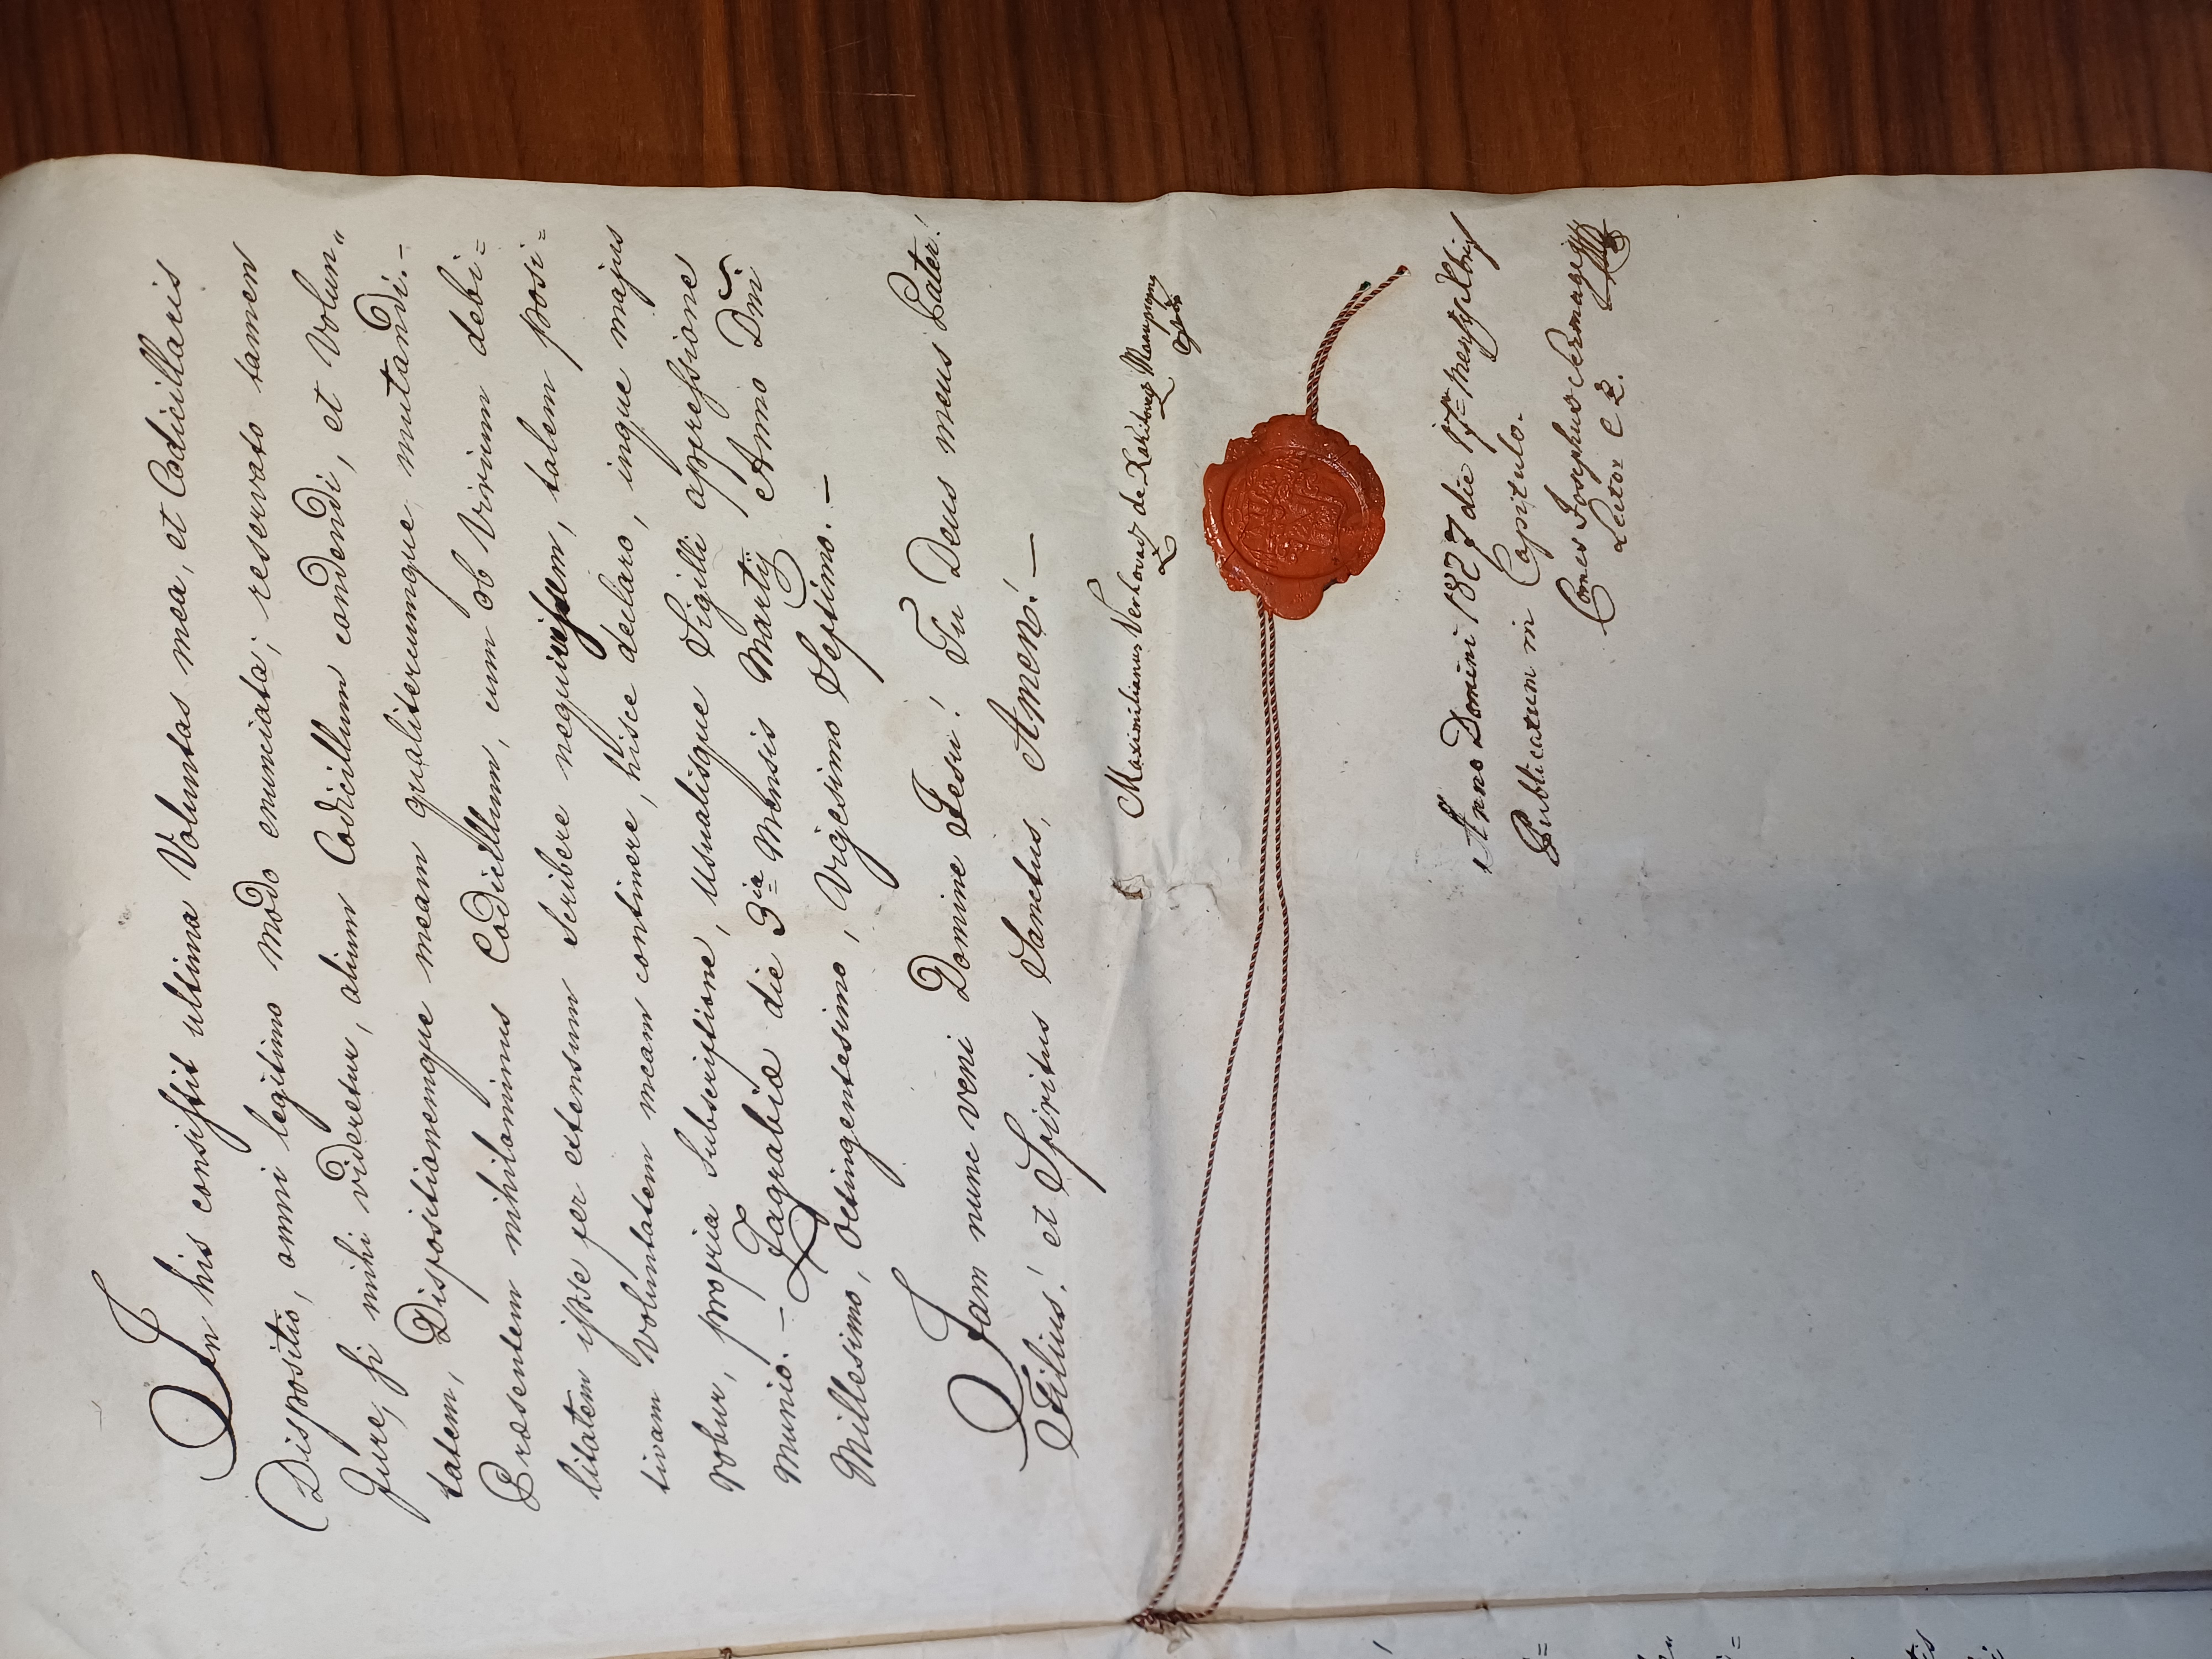 In his consistit ultima Voluntas mea, et Codicillaris
Dispositio, omni legitimo modo enunciata; reservato tamen
Jure, si mihi videretur, alium Codicillum condendi, et Volun„
tatem, Dispositionemque meam qualiterumque mutandi.–
Præsentem nihilominus Codicillum, cum ob Virium debi=
litatem ipse per extensum scribere nequivissem, talem posi=
tivam Voluntatem meam continere, hisce declaro, inque majus
robur, propria Subscriptione, Usualisque Sigilli appressione
munio. – Zagrabiæ die 3ia Mensis Martij Anno Dni
Millesimo, Octingentesimo, Vigesimo Septimo. –
Jam nunc veni Domine Jesu! Tu Deus meus Pater!
Filius! et Spiritus Sanctus, Amen! –
Maximilianus Verhovacz de Rakitovecz
Anno Domini 1827 die 17a Mensis Xbris
Publicatum in Capitulo.
Comes Josephus Sermage
Lector C. Z.